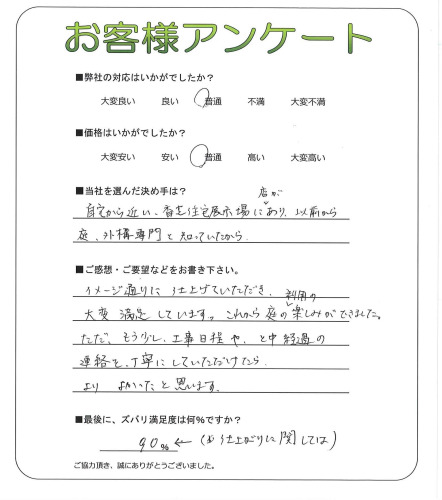 お客様アンケート
■弊社の対応はいかがでしたか？
大変良い 良い 普通 不満 大変不満
■価格はいかがでしたか？
大変安い 安い 普通 高い 大変高い
■当社を選んだ決め手は？
店が
自宅から近い、香芝住宅展示場にあり、以前から
庭、外構専門と知っていたから。
■ご感想・ご要望などをお書き下さい。
イメージ通りに仕上げていただき、
利用の
大変満足しています。これから庭の楽しみができました。
ただ、もう少し、工事日程や、と中経過の
連絡を、丁寧にしていただけたら
より よかったと思います。
■最後に、ズバリ満足度は何％ですか？
90％ ← ( 仕上がりに関しては)
ご協力頂き、誠にありがとうございました。